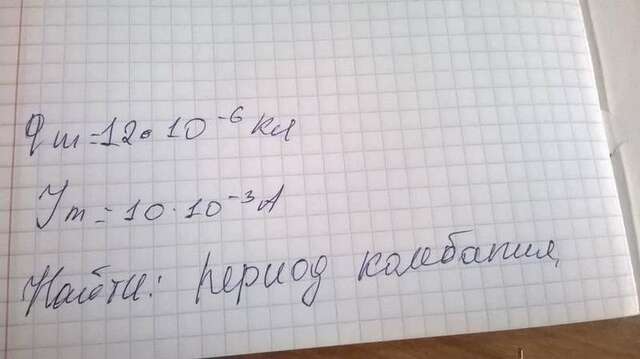 qm=12•10⁻⁶ кл
Jm=10·10⁻³А
Найти: период колебания,